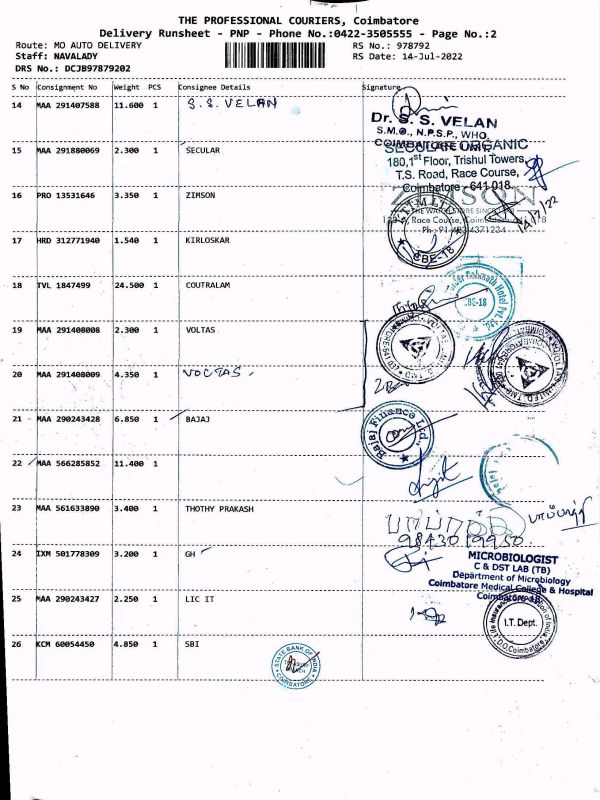 THE PROFESSIONAL COURIERS, Coimbatore
Delivery Runsheet - PNP - Phone No.:0422-3505555 - Page No.:2
Route: MO AUTO DELIVERY
RS No.: 978792
Staff: NAVALADY
RS Date: 14-Jul-2022
DRS No.: DCJB97879202
S No Consignment No Weight PCS Consignee Details Signature
14 MAA 291407588 11.600 1 S.S. VELAN
Dr. S. S. VELAN
S.M.O., N.P.S.P., WHO,
COIMBATORE UNIT,
15 MAA 291880069 2.300 1 SECULAR
SECULAR ORGANIC
180,1st Floor, Trishul Towers,
T.S. Road, Race Course,
Coimbatore - 641 018.
16 PRO 13531646 3.350 1 ZIMSON
ZIMSON
14/7/22
17 HRD 312771940 1.540 1 KIRLOSKAR
CBE-18
18 TVL 1847499 24.500 1 COUTRALAM
CBE-18
19 MAA 291408008 2.300 1 VOLTAS
20 MAA 291408009 4.350 1 VOCTAS.
21 MAA 290243428 6.850 1 BAJAJ
Bajaj Finance Ltd.
22 MAA 566285852 11.400 1
23 MAA 561633890 3.400 1 THOTHY PRAKASH
24 IXM 501778309 3.200 1 GH
MICROBIOLOGIST
C & DST LAB (TB)
Department of Microbiology
Coimbatore Medical College & Hospital
Coimbatore-18
25 MAA 290243427 2.250 1 LIC IT
I.T. Dept.
26 KCM 60054450 4.850 1 SBI
STATE BANK OF INDIA
COIMBATORE